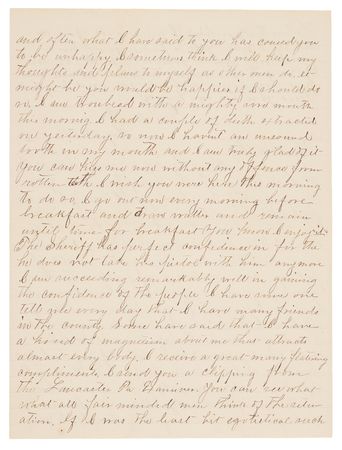 and often what I have said to you has caused you
to be unhappy I sometimes think I will keep my
thoughts and plans to myself as other men do, it
might be you would be happier if I should do
so, I am troubled with a mighty sore mouth
this morning I had a couple of teeth extracted
on yesterday, so now I havent an unsound
tooth in my mouth and I am truly glad of it
You can kiss me now without any offence from
rotten teeth I wish you were here this morning
to do so, I go out now every morning before
breakfast and draw water and remain
until time for breakfast You know I enjoy it.
The Sheriff has perfect confidence in for the
he does not take his pistol with him anymore
I am succeeding remarkably well in gaining
the confidence of the people I have some one
tell me every day that I have many friends
in the county Some have said that I have
a kind of magnetism about me that attracts
almost every body. I receive a great many flattering
compliments. I send you a clipping from
the Lancaster Pa Examiner You can see what
what all fair minded men think of the situ-
ation. If I was the least bit egotistical such